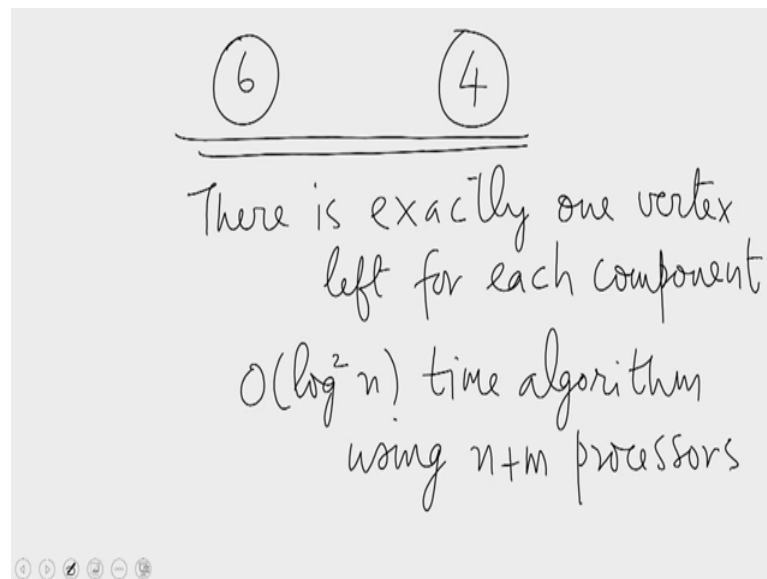 6 4
There is exactly one vertex
left for each component
O(log² n) time algorithm
using n+m processors